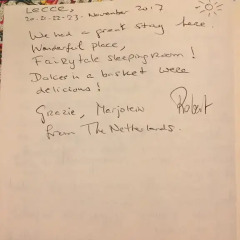 Lecce,
20-21-22-23- November 2017
We had a great stay here.
Wonderful place,
Fairytale sleepingroom!
Dolce in a basket were
delicious!
Grazie, Marjolein Robert
from The Netherlands.